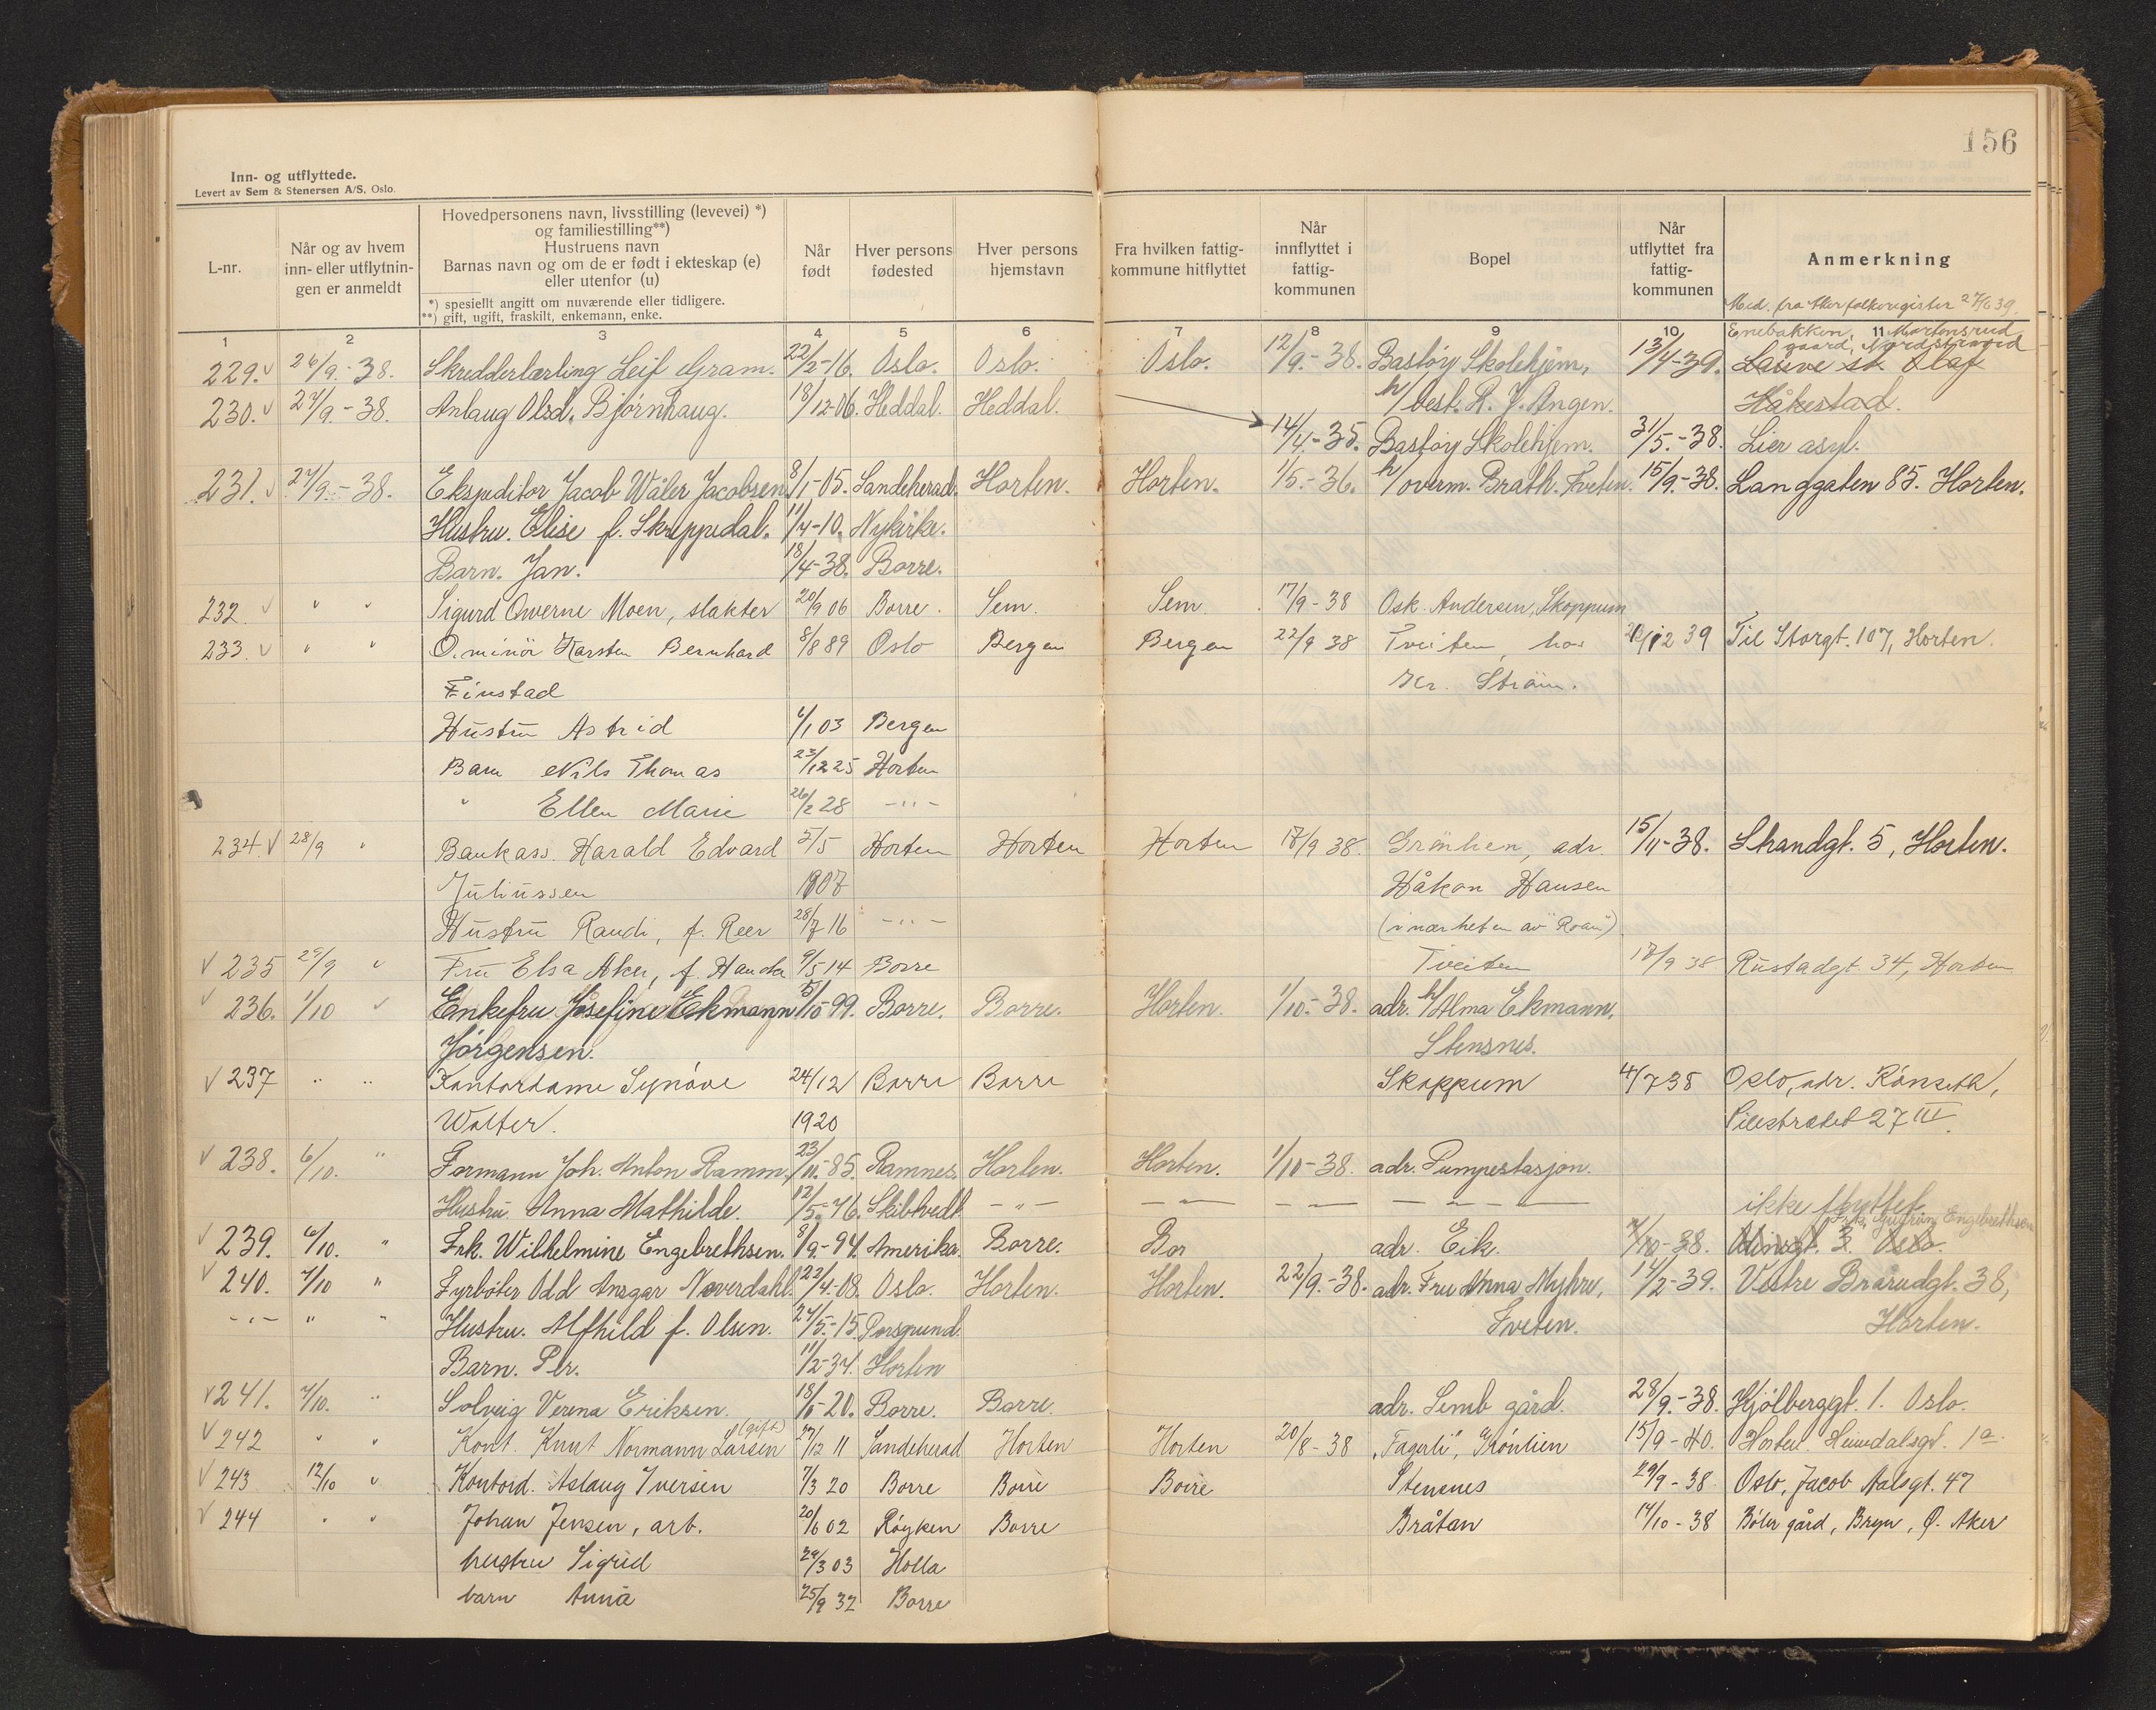 156
Inn- og utflyttede.
Levert av Sem & Stenersen A/S, Oslo.
L-nr. Når og av hvem inn- eller utflytnin-gen er anmeldt Hovedpersonens navn, livsstilling (levevei) *) og familiestilling**) Hustruens navn Barnas navn og om de er født i ekteskap (e) eller utenfor (u) Når født Hver persons fødested Hver persons hjemstavn Fra hvilken fattig-kommune hitflyttet Når innflyttet i fattig-kommunen Bopel Når utflyttet fra fattig-kommunen Anmerkning
*) spesiellt angitt om nuværende eller tidligere.
**) gift, ugift, fraskilt, enkemann, enke.
Med. fra Aker folkeregister 27/6 39.
1 2 3 4 5 6 7 8 9 10 11
Enebakken, Mortensrud
gaard, Nordstrand
229. 26/9.-38. Skredderlærling Leif Gram. 22/2-16. Oslo. Oslo. Oslo. 12/9.-38. Bastøy Skolehjem, 13/4-39. Lauve st. Olaf
230. 27/9.-38. Anlaug Olsd. Bjørnhaug. 18/12-06. Heddal. Heddal. h/best. R. J. Angen. Håkestad.
14/4.-35. Bastøy Skolehjem. 31/5.-38. Lier asyl.
231. 27/9.-38. Ekspeditor Jacob Wåler Jacobsen 8/1-05. Sandeherad. Horten. Horten. 1/5.-36. h/overm. Bråth. Tveten. 15/9.-38. Langgaten 85. Horten.
Hustru. Elise f. Skreppedal. 11/4-10. Nykirke.
Barn. Jan. 18/4-38. Borre.
232. " " Sigurd Owerne Moen, slakter 20/9 06 Borre. Sem. Sem. 17/9-38 Osk. Andersen, Skoppum
233. " " O.minör Karsten Bernhard 8/8 89 Oslo Bergen Bergen 22/9 38 Tveiten, hos 12 39 Til Storgt. 107, Horten.
Finstad Kr. Ström.
Hustru Astrid 6/1 03 Bergen
Barn Nils Thomas 23/12 25 Horten
" Ellen Marie 26/2 28 -"-
234. 28/9 " Bankass. Harald Edvard 5/5 Horten Horten Horten 17/9 38. Grönlien, adr. 15/11-38. Strandgt. 5, Horten.
Juliussen 1907 Håkon Hansen
Hustru Randi, f. Reer 28/7 16 -"- (i nærheten av "Roan")
235 29/9 " Fru Elsa Aker, f. 9/5 14 Borre Tveiten 17/9 38 Rustadgt. 34, Horten
236. 1/10 " Enkefru Josefine Ekmann 5/10-99. Borre. Borre. Horten. 1/10.-38. adr. h/Alma Ekmann,
Jørgensen. Stensnes.
237 " " Kontordame Synøve 24/12 Borre Borre Skoppum 4/7 38 Oslo, adr. Rönseth,
Wolter. 1920 Pilestredet 27 III
238. 6/10. " Formann Joh. Anton Ramm. 23/11.-85. Ramnes. Horten. Horten. 1/10-38. adr. Pumpestasjon.
Hustru. Anna Mathilde. 12/5.-76. Skibtvedt -"- -"- -"- -"- ikke flyttet
Frk. Gudrun Engebrethsen
239. 6/10. " Frk. Wilhelmine Engebrethsen. 8/9.-94. Amerika. Borre. Bor adr. Eik. 7/10-38. 3. Oslo.
240. 7/10 " Fyrbøter Odd Ansgar Nøverdahl. 22/4-08. Oslo. Horten. Horten. 22/9.-38. adr. Fru Anna Myhre, 14/2-39. Vestre Braarudgt. 38,
-"- " " Hustru. Alfhild f. Olsen. 24/5.-15. Porsgrund. Tveten. Horten.
Barn. Per. 11/2-34. Horten
241. 7/10. " Solveig Verena Eriksen. 18/6-20. Borre. Borre. adr. Semb gård. 28/9.-38. Hjölberggt. 1. Oslo.
242 " " Kont. Knut Normann Larsen (gift) 27/12 11 Sandeherad Horten Horten 20/8-38 "Fagerli", Grönlien 15/9-40. Horten. Heimdalsgt. 1a.
243 12/10 " Kontord. Aslaug Iversen 7/3 20 Borre Borre Borre Stensnes 29/9-38 Oslo, Jacob Aalsgt. 47
244 " " Johan Jensen, arb. 20/6 02 Røyken Borre Bråtan 14/10-38 Bøler gård, Bryn, Ø. Aker
hustru Sigrid 29/3 03 Holla
barn Anna 25/9 32 Borre